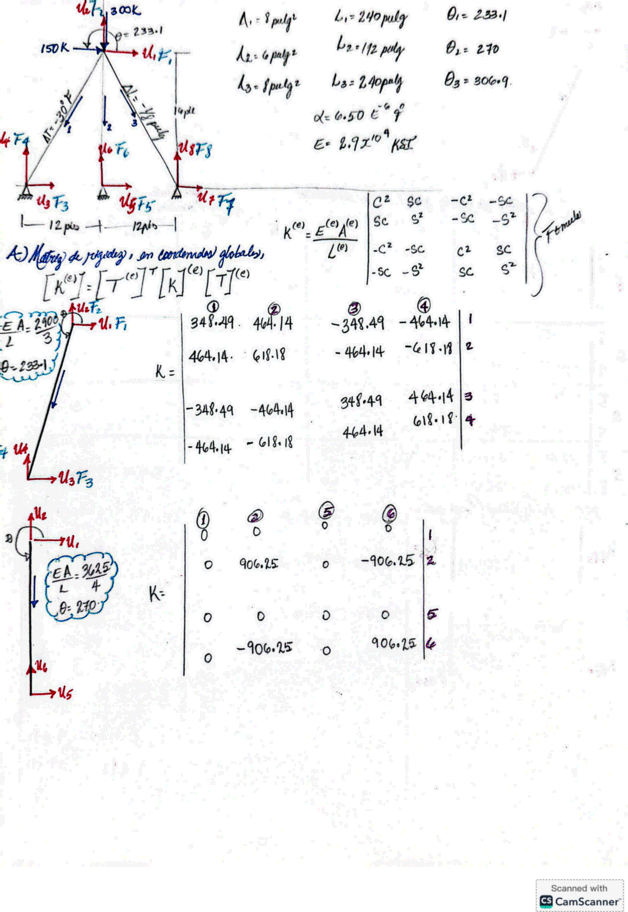 U2 F2 300K
θ = 233.1
150K U1 F1
ΔT = -30°F
ΔL = -1/8 pulg
1 2 3
16 pie
F4 U6 F6 U8 F8
U3 F3 U5 F5 U7 F7
12 pies 12 pies
A1 = 8 pulg² L1 = 240 pulg θ1 = 233.1
A2 = 6 pulg² L2 = 192 pulg θ2 = 270
A3 = 8 pulg² L3 = 240 pulg θ3 = 306.9.
α = 6.50 E⁻⁶
E = 2.9x10⁴ KSI
K(e) = E(e)A(e) / L(e)
C² SC -C² -SC
SC S² -SC -S²
-C² -SC C² SC
-SC -S² SC S²
A-) Matriz de rigidez, en coordenadas globales,
[K(e)] = [T(e)]ᵀ [K](e) [T](e)
U2 F2
U1 F1
EA/L = 2900/3
θ = 233.1
U4
U3 F3
K =
1 2 3 4
348.49 464.14 -348.49 -464.14 1
464.14 618.18 -464.14 -618.18 2
-348.49 -464.14 348.49 464.14 3
-464.14 -618.18 464.14 618.18 4
U2
U1
EA/L = 3625/4
θ = 270
U6
U5
K =
1 2 5 6
0 0 0 0 1
0 906.25 0 -906.25 2
0 0 0 0 5
0 -906.25 0 906.25 6
Scanned with
CS CamScanner